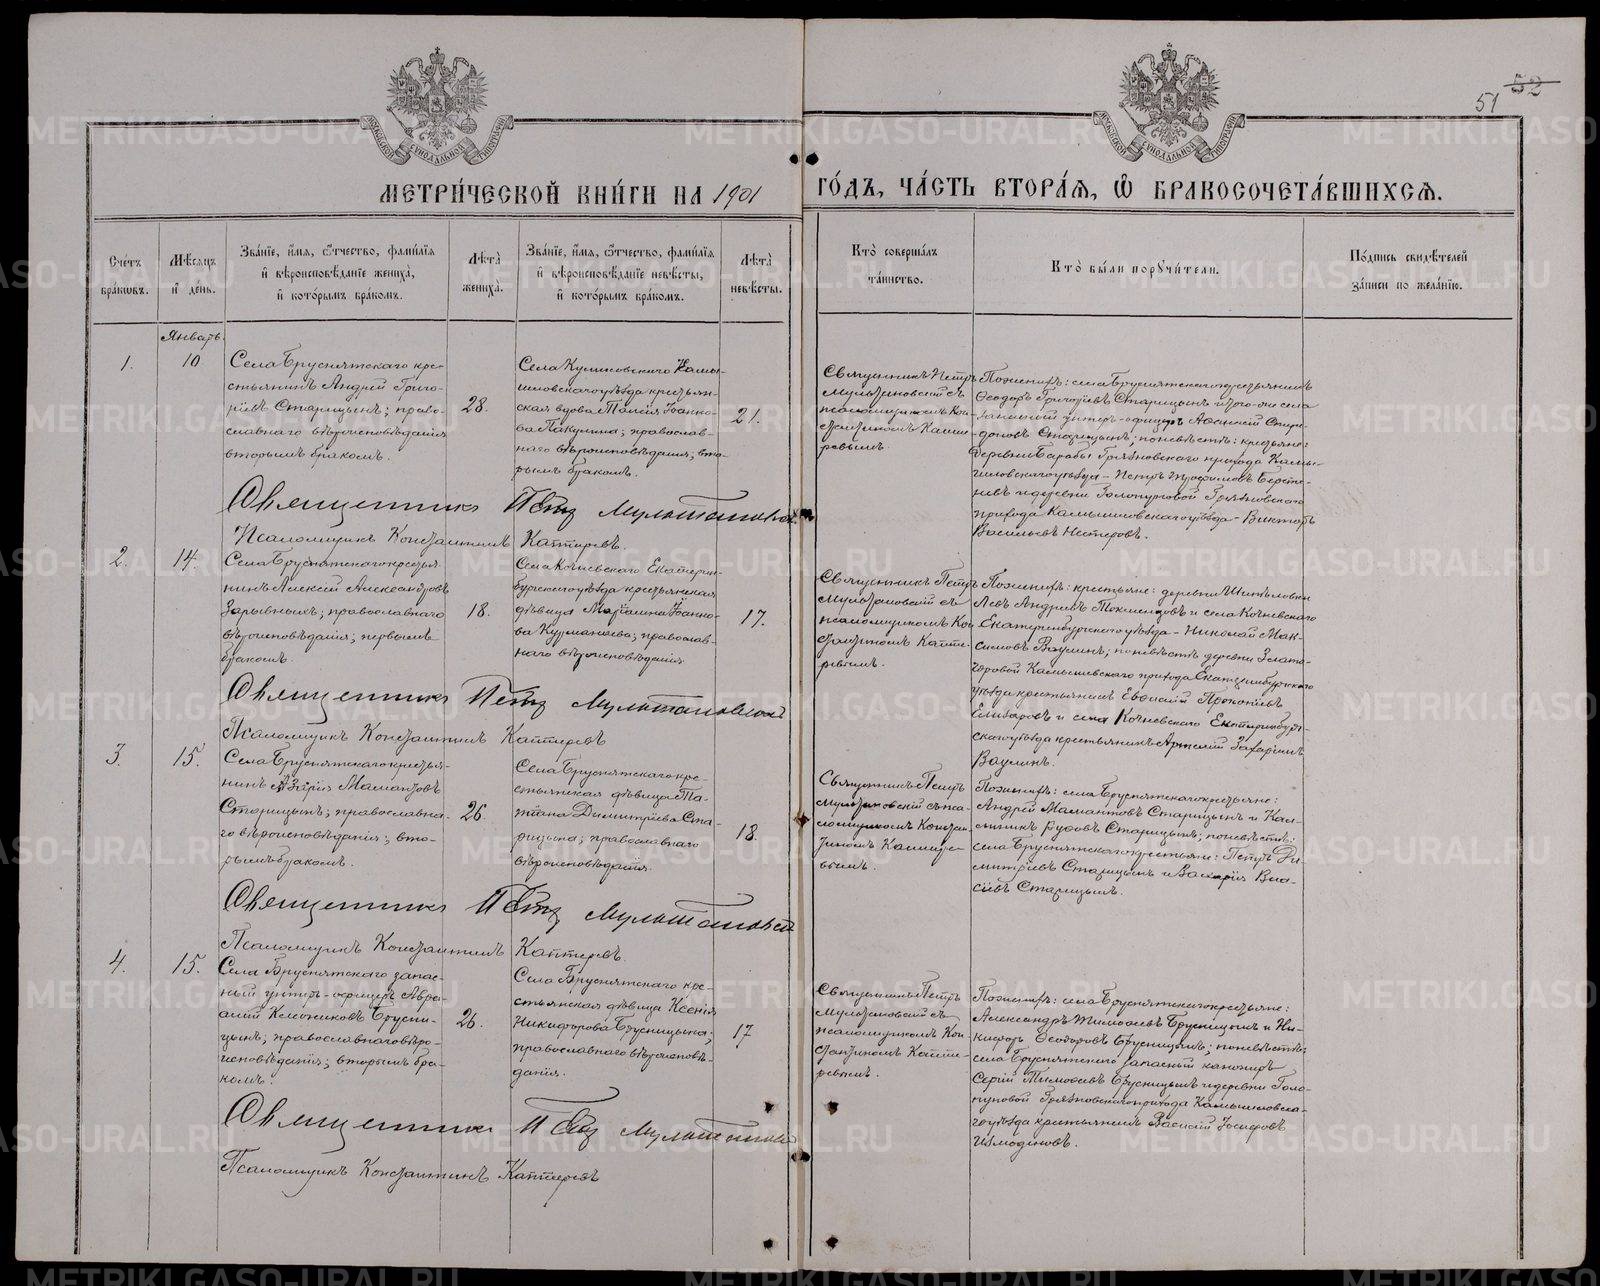 51 52
МЕТРИ́ЧЕСКОЙ КНИ́ГИ НА 1901 ГО́ДЪ, ЧА́СТЬ ВТОРА́Я, Ѽ БРАКОСОЧЕТА́ВШИХСЯ.
Сче́тъ бра́ковъ.
Мѣ́сяцъ и҆ де́нь.
Зва́нїе, и҆́мя, ѻ҆́тчество, фами́лїя
и҆ вѣроисповѣ́данїе жениха̀,
и҆ кото́рымъ бра́комъ.
Лѣ́та жениха̀.
Зва́нїе, и҆́мя, ѻ҆́тчество, фами́лїя
и҆ вѣроисповѣ́данїе невѣ́сты,
и҆ кото́рымъ бра́комъ.
Лѣ́та невѣ́сты.
Кто̀ соверша́лъ та́инство.
Кто̀ бы́ли порꙋчи́тели.
По́дпись свидѣ́телей за́писи по жела́нїю.
Январь.
1.
10
Села Бруснятскаго кре-
стьянинъ Андрей Григо-
рїевъ Старицынъ; право-
славнаго вѣроисповѣданія
вторымъ бракомъ.
28.
Села Куликовскаго Камы-
шловскаго уѣзда крестьян-
ская вдова Таисія Іоанно-
ва Пакулина; православ-
наго вѣроисповѣданія; вто-
рымъ бракомъ.
21.
Священникъ Петръ
Мультановскій съ
псаломщикомъ Кон-
стантиномъ Капте-
ревымъ.
По женихѣ: села Бруснятскаго крестьянинъ
Ѳеодоръ Григорїевъ Старицынъ и того-же села
запасный унтеръ-офицеръ Аѳанасій Спири-
доновъ Старицынъ; по невѣстѣ: крестьяне:
деревни Барабы Грязновскаго прихода Камы-
шловскаго уѣзда - Петръ Трофимовъ Берсе-
невъ и деревни Голопуповой Грязновскаго
прихода Камышловскаго уѣзда - Викторъ
Васильевъ Нестеровъ.
Священникъ Петръ Мультановскій
Псаломщикъ Константинъ Каптеревъ.
2.
14.
Села Бруснятскаго кресть-
нинъ Алексій Александровъ
Зарывныхъ; православнаго
вѣроисповѣданія; первымъ
бракомъ.
18.
Села Кочневскаго Екатерин-
бургскаго уѣзда крестьянская
дѣвица Маріанна Іоанно-
ва Курманаева; православ-
наго вѣроисповѣданія
17.
Священникъ Петръ
Мультановскій съ
псаломщикомъ Кон-
стантиномъ Капте-
ревымъ.
По женихѣ: крестьяне: деревни
Левъ Андреевъ Токманцовъ и села Кочневскаго
Екатеринбургскаго уѣзда - Николай Мак-
симовъ Ваулинъ; по невѣстѣ деревни Злато-
горовой Камышевскаго прихода Екатеринбургскаго
уѣзда крестьянинъ Евѳимій Прокопіевъ
Елизаровъ и села Кочневскаго Екатеринбург-
скаго уѣзда крестьянинъ Артемій Захаринъ
Ваулинъ.
Священникъ Петръ Мультановскій
Псаломщикъ Константинъ Каптеревъ
3.
15.
Села Бруснятскаго крестья-
нинъ Азарія Мамантовъ
Старицынъ; православна-
го вѣроисповѣданія; вто-
рымъ бракомъ.
26.
Села Бруснятскаго кре-
стьянская дѣвица Та-
тіана Димитріева Ста-
рицына; православнаго
вѣроисповѣданія.
18.
Священникъ Петръ
Мультановскій съ пса-
ломщикомъ Констан-
тиномъ Каптере-
вымъ.
По женихѣ: села Бруснятскаго крестьяне:
Андрей Мамантовъ Старицынъ и Кал-
линикъ Старицынъ; по невѣстѣ:
села Бруснятскаго крестьяне: Петръ Ди-
митріевъ Старицынъ и Захарія Вла-
сіевъ Старицынъ.
Священникъ Петръ Мультановскій
Псаломщикъ Константинъ Каптеревъ.
4.
15.
Села Бруснятскаго запас-
ный унтеръ-офицеръ Авра-
амій Брусни-
цынъ; православнаго вѣро-
исповѣданія; вторымъ бра-
комъ.
26.
Села Бруснятскаго кре-
стьянская дѣвица Ксенія
Никифорова Брусницына;
православнаго вѣроисповѣ-
данія.
17
Священникъ Петръ
Мультановскій съ
псаломщикомъ Кон-
стантиномъ Капте-
ревымъ.
По женихѣ: села Бруснятскаго крестьяне:
Александръ Тимоѳеевъ Брусницынъ и Ни-
кифоръ Ѳеодоровъ Брусницынъ; по невѣстѣ:
села Бруснятскаго запасный канониръ
Сергій Тимоѳеевъ Брусницынъ и деревни Голо-
пуповой Грязновскаго прихода Камышловска-
го уѣзда крестьянинъ Василій Іосифовъ
Измоденовъ.
Священникъ Петръ Мультановскій
Псаломщикъ Константинъ Каптеревъ
METRIKI.GASO-URAL.RU